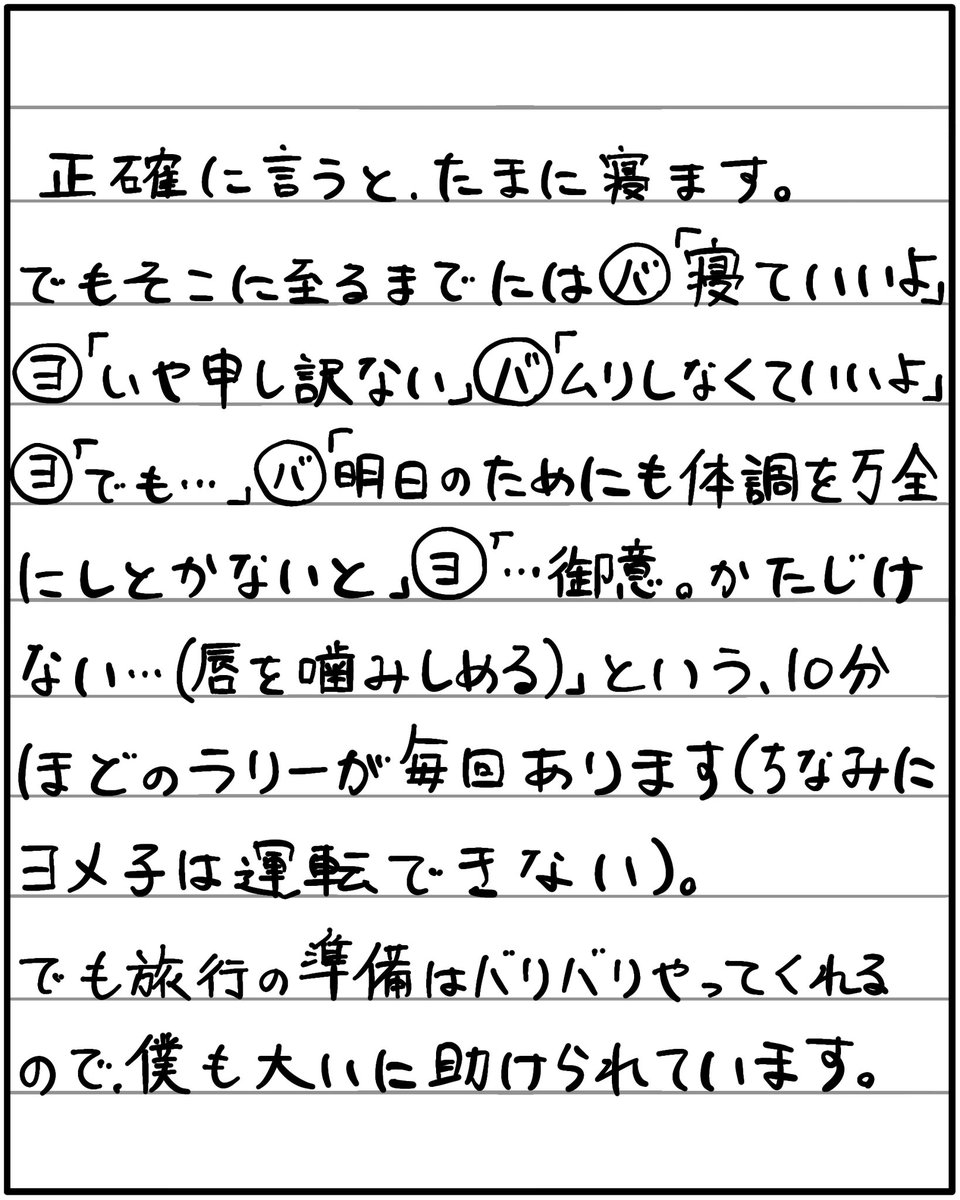 正確に言うと、たまに寝ます。
でもそこに至るまでにはバ「寝ていいよ」
ヨ「いや申し訳ない」バ「ムリしなくていいよ」
ヨ「でも…」バ「明日のためにも体調を万全
にしとかないと」ヨ「…御意。かたじけ
ない…(唇を噛みしめる)」という、10分
ほどのラリーが毎回あります(ちなみに
ヨメ子は運転できない)。
でも旅行の準備はバリバリやってくれる
ので、僕も大いに助けられています。